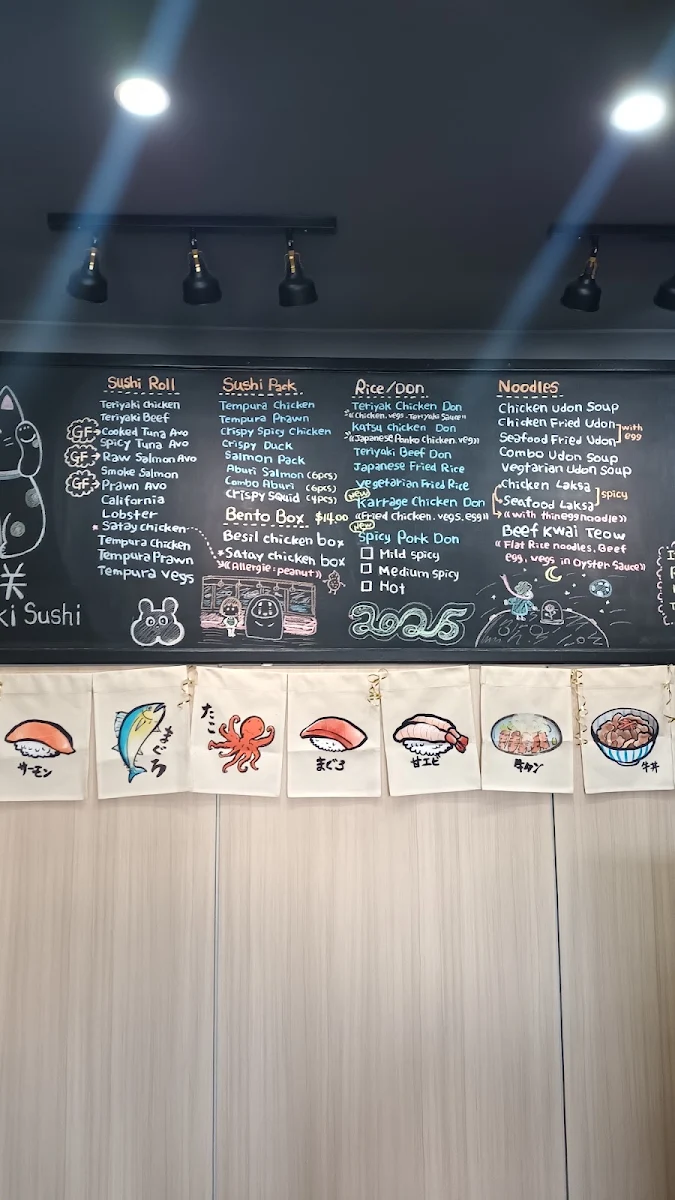 Sushi Roll
Teriyaki chicken
Teriyaki Beef
GF Cooked Tuna Avo
Spicy Tuna Avo
GF Raw Salmon Avo
Smoke Salmon
GF Prawn Avo
California
Lobster
* Satay chicken
Tempura chicken
Tempura Prawn
Tempura vegs
Sushi Pack
Tempura Chicken
Tempura Prawn
Crispy Spicy Chicken
Crispy Duck
Salmon Pack
Aburi Salmon (6pcs)
Combo Aburi (6pcs)
Crispy Squid (4pcs)
Bento Box $14.00
Besil chicken box
*Satay chicken box
*(Allergie: peanut))
Rice/Don
Teriyak Chicken Don
((Chicken. vegs. Teriyaki Sauce))
Katsu chicken Don
((Japanese Panko chicken. veg))
Teriyaki Beef Don
Japanese Fried Rice
vegetarian Fried Rice
New
Karrage Chicken Don
((Fried chicken. vegs. egg))
New
Spicy Pork Don
Mild spicy
Medium spicy
Hot
2025
Noodles
Chicken udon Soup
Chicken Fried Udon
Seafood Fried Udon
with egg
Combo Udon Soup
Vegtarian Udon Soup
Chicken Laksa
Seafood Laksa
spicy
(( with thin egg noodle))
Beef Kwai Teow
(( Flat Rice noodles. Beef
egg. vegs in Oyster Sauce))
米
ki Sushi
サーモン
まぐろ
たこ
まぐろ
甘エビ
牛タン
牛丼